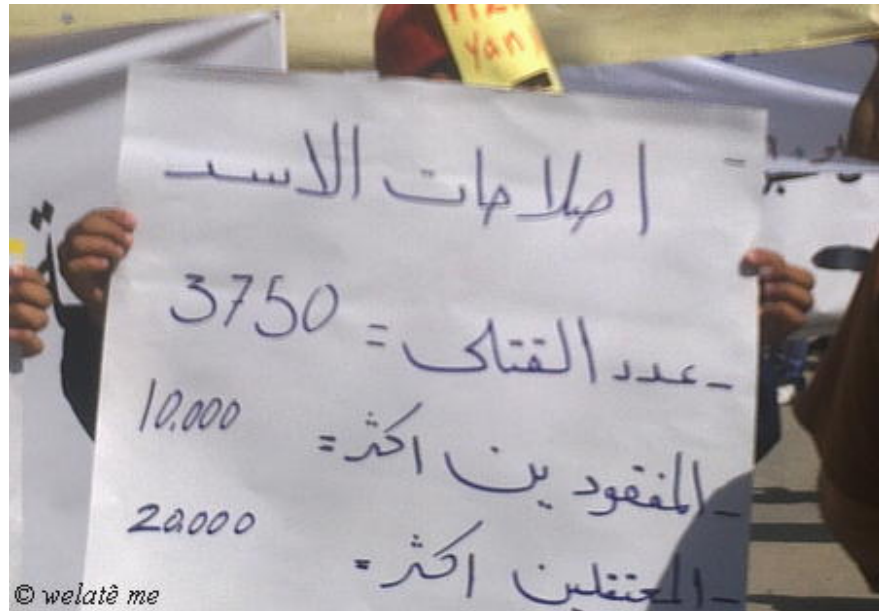 yan
اصلاحات الاسد
-عدد القتلى = 3750
-المفقودين اكثر = 10.000
-المعتقلين اكثر = 20000
© welatê me